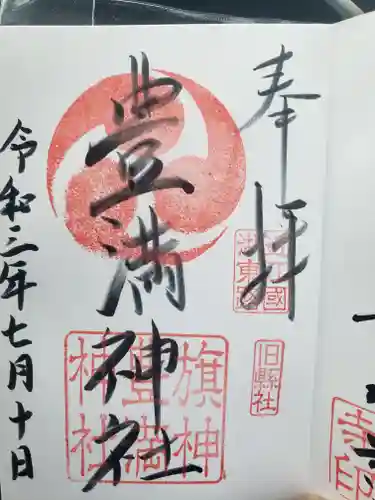 奉拝
豊満神社
令和三年七月十日
旗神
豊満
神社
旧縣社
寺印